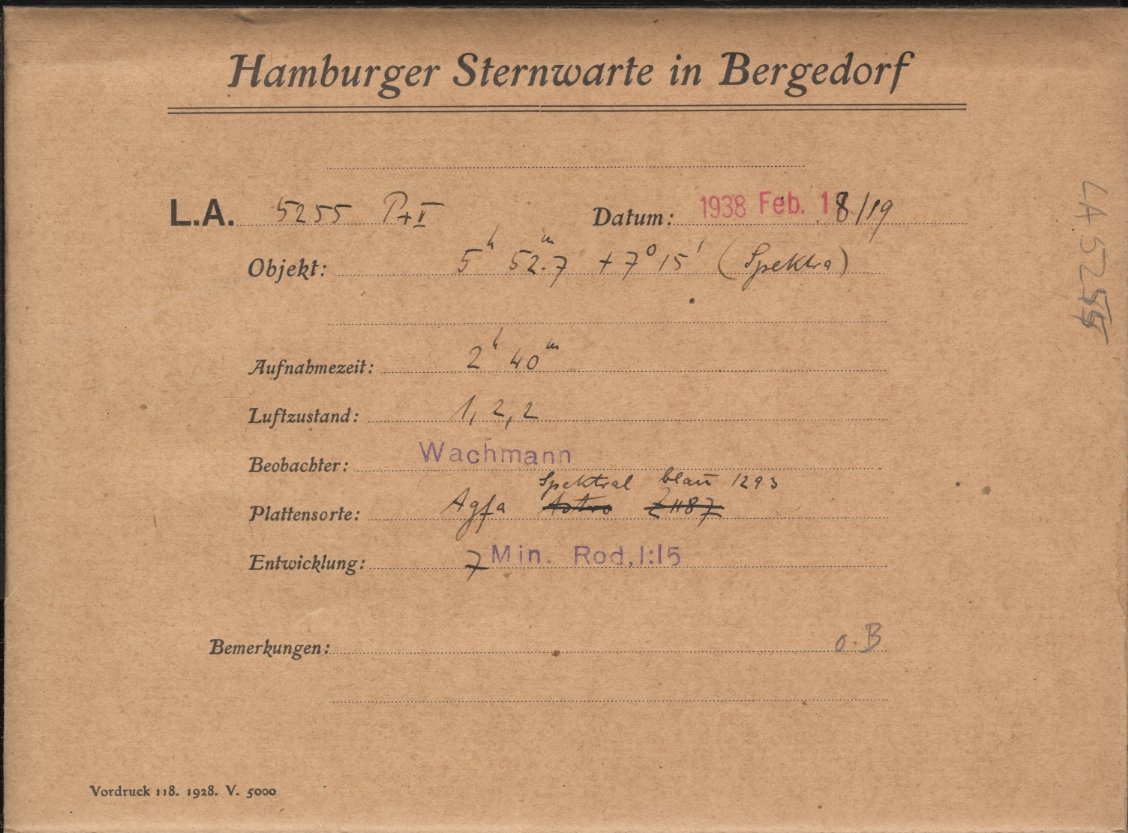 Hamburger Sternwarte in Bergedorf
L.A. 5255 Pr I Datum: 1938 Feb. 18/19
Objekt: 5ʰ 52ᵐ.7 +7° 15' (Spektra)
Aufnahmezeit: 2ʰ 40ᵐ
Luftzustand: 1, 2, 2
Beobachter: Wachmann
Spektral blau 1293
Plattensorte: Agfa Astro Z1187
Entwicklung: 7 Min. Rod. 1:15
Bemerkungen: o.B
Vordruck 118. 1928. V. 5000
LA 5255